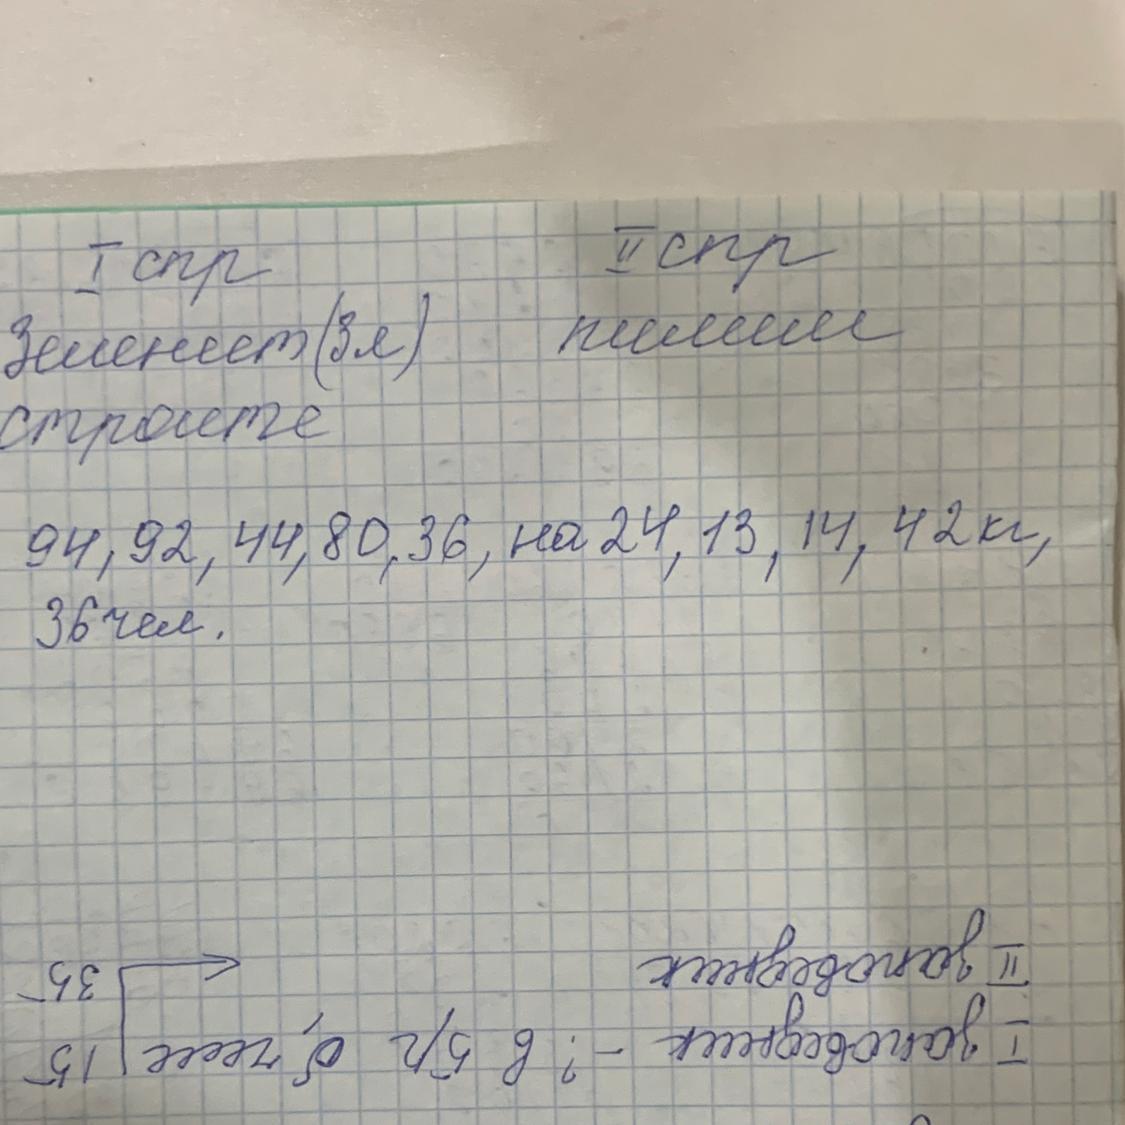 I спр II спр
Зеленеет (3л) пилили
строите
94, 92, 44, 80, 36, на 24, 13, 14, 42 кг,
36 чел.
I заповедник - ? в 5 р б, чем 15
II заповедник 35